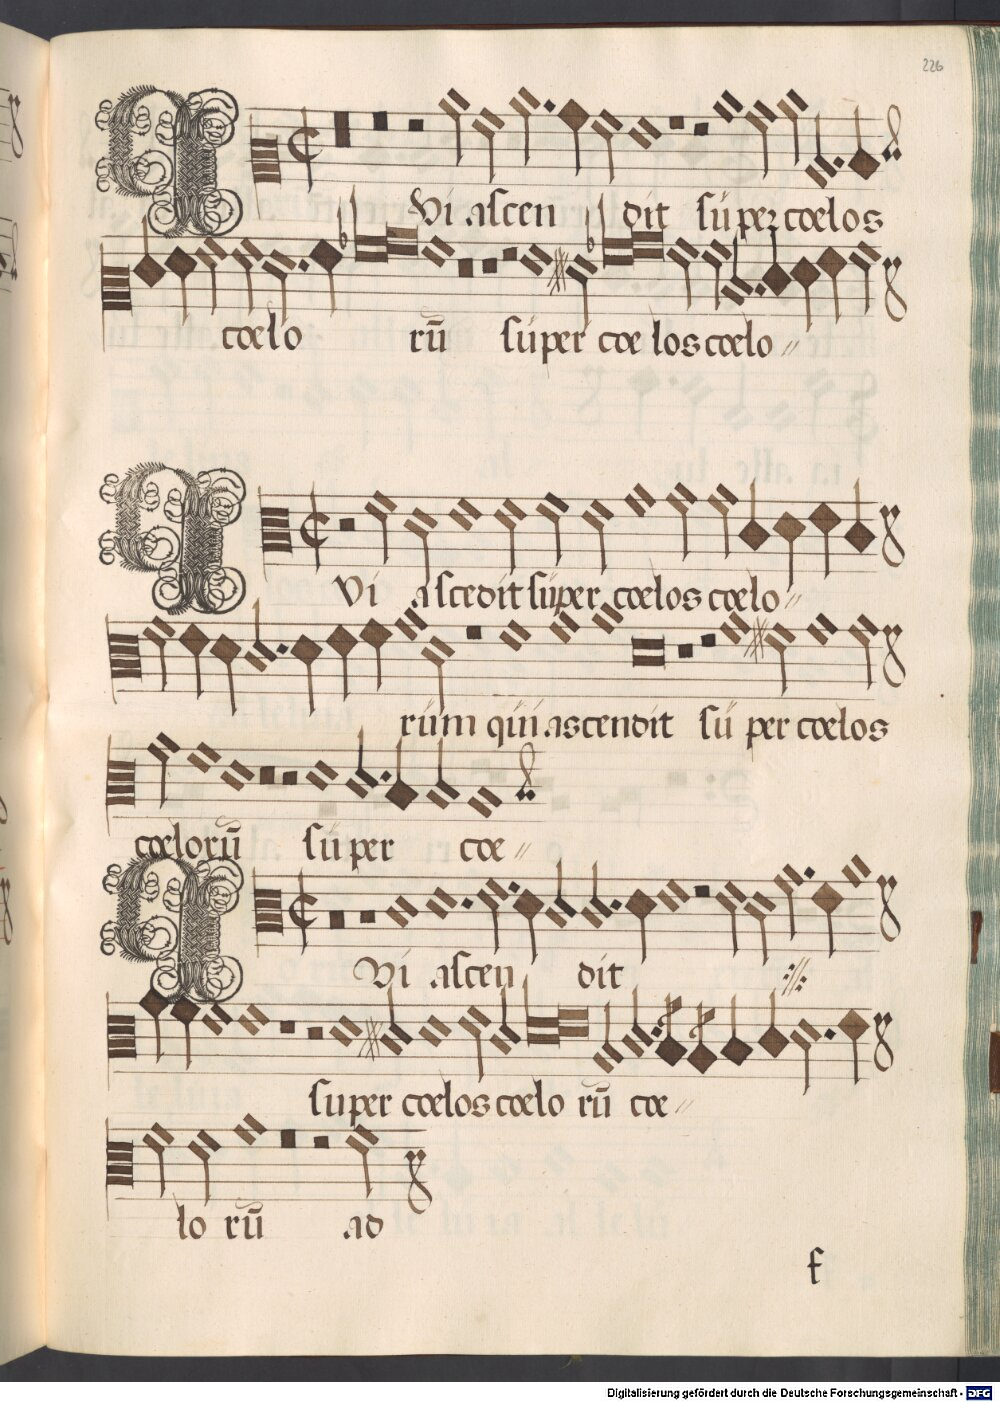 226
QVi ascen dit sú per cœlos
cœlo rū súper cœ los cœlo //
QVi ascēdit súper cœlos cœlo //
rúm qúi ascendit sú per cœlos
cœlorū súper cœ //
QVi ascen dit ://:
super cœlos cœlo rū cœ //
lo rū ad
f
Digitalisierung gefördert durch die Deutsche Forschungsgemeinschaft - DFG